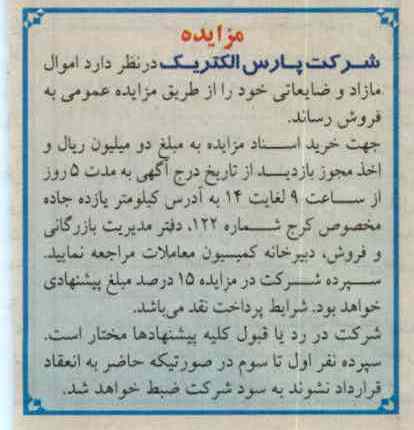 مزایده
شرکت پارس الکتریک درنظر دارد اموال
مازاد و ضایعاتی خود را از طریق مزایده عمومی به
فروش رساند.
جهت خرید اسناد مزایده به مبلغ دو میلیون ریال و
اخذ مجوز بازدید از تاریخ درج آگهی به مدت ۵ روز
از ساعت ۹ لغایت ۱۴ به آدرس کیلومتر یازده جاده
مخصوص کرج شماره ۱۲۲، دفتر مدیریت بازرگانی
و فروش، دبیرخانه کمیسیون معاملات مراجعه نمایید.
سپرده شرکت در مزایده ۱۵ درصد مبلغ پیشنهادی
خواهد بود. شرایط پرداخت نقد می‌باشد.
شرکت در رد یا قبول کلیه پیشنهادها مختار است.
سپرده نفر اول تا سوم در صورتیکه حاضر به انعقاد
قرارداد نشوند به سود شرکت ضبط خواهد شد.